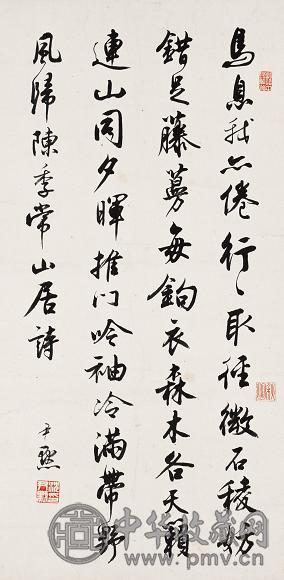 馬息我亦倦行〻取徑微石稜妨
錯足藤蔓每鉤衣森木各天籟
連山同夕暉推門吟袖冷滿帶野
風歸陳季常山居詩
尹默
中华收藏网
www.pmv.cn